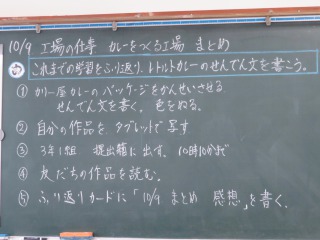 10/9 工場の仕事 カレーをつくる工場 まとめ
め これまでの学習をふり返り、レトルトカレーのせんでん文を書こう。
① カリー屋カレーのパッケージをかんせいさせる
せんでん文を書く。色をぬる。
② 自分の作品を、タブレットで写す
③ 3年1組 提出箱に出す。10時10分まで
④ 友だちの作品を読む。
⑤ ふり返りカードに「10/9 まとめ 感想」を書く。